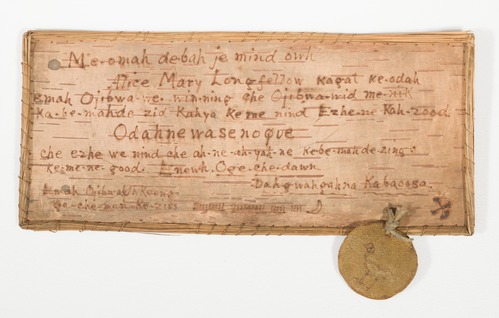 Me-omah debah je mind owh
Alice Mary Longfellow Kagat Ke-odah
emah Ojibwa-ne-win-ning che Ojibwa-wid me-
Ka-be-mahde zid Kahya Keme nind Ezhe-ne Kah-zood
Odahnewasenoque
che ezhe we nind che ah-ne-ah-yah-ne Kebe-mahde-zing
Ke-me-ne-good. Enewh Oge-che-dawn.
Dahgwahgukna Kabaoosa.
Emah Ojibwa
Ke-che-mon Ke-zies